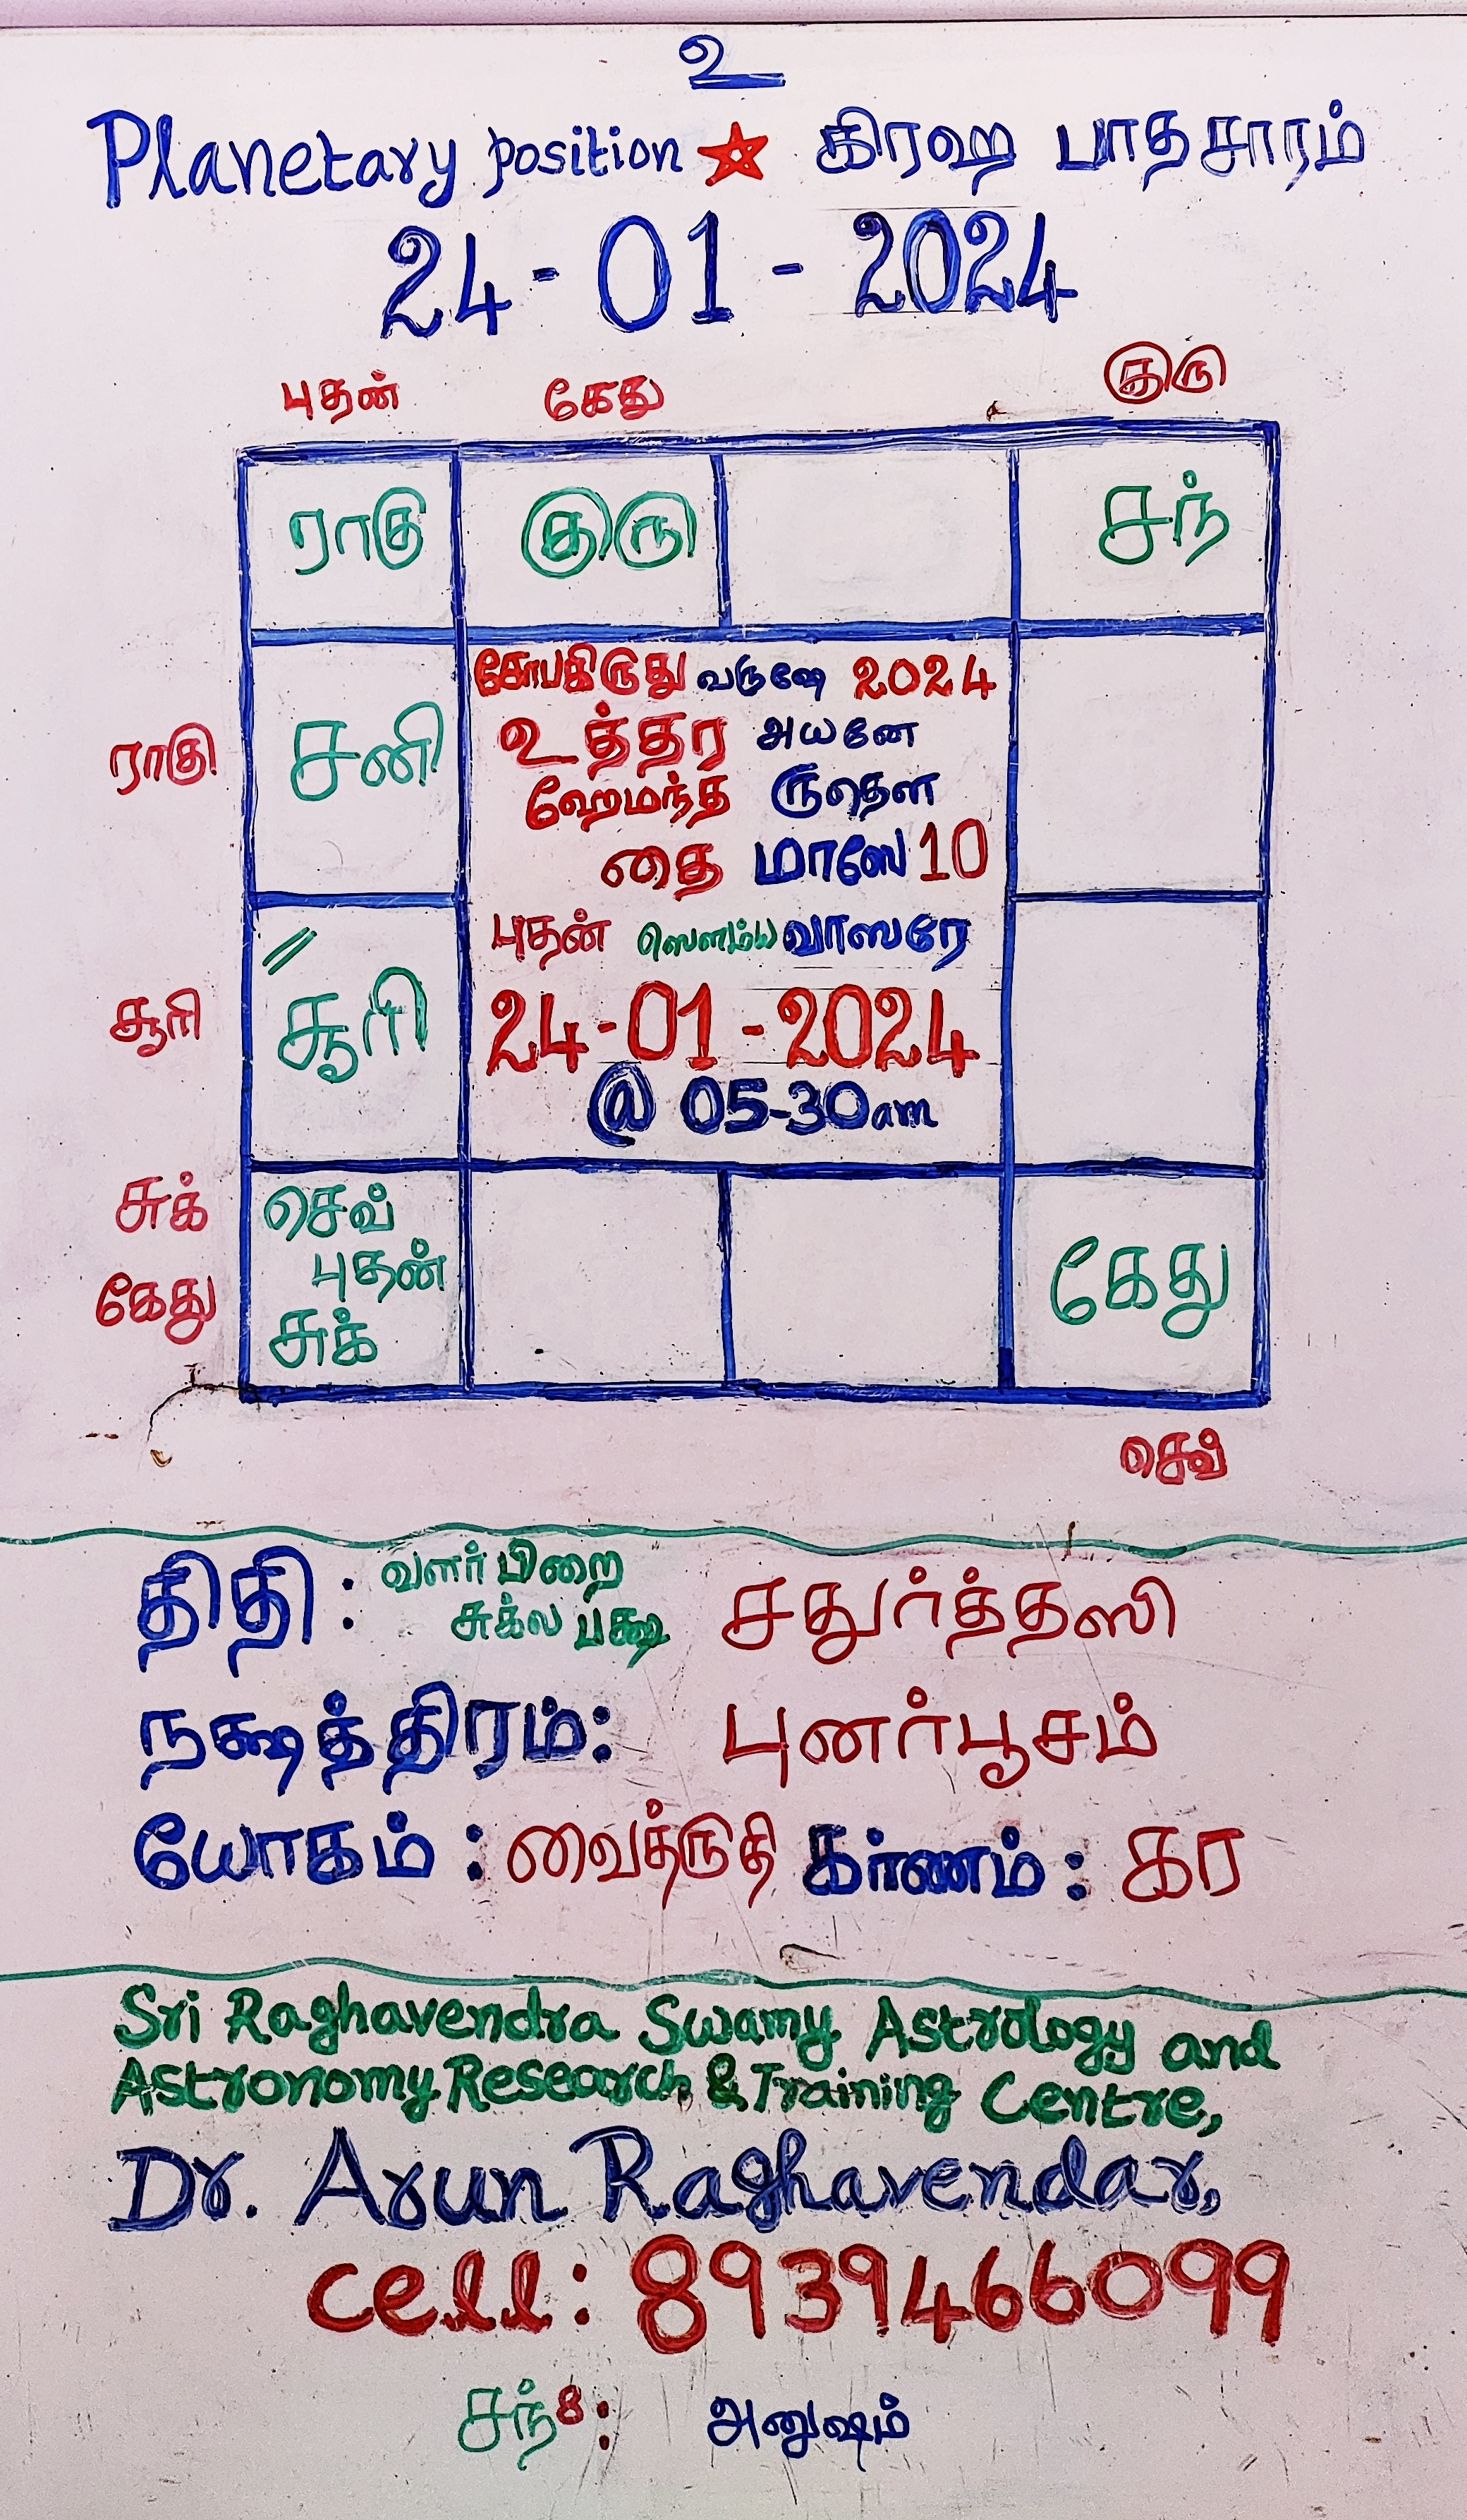 உ
Planetary position ☆ கிரஹ பாதசாரம்
24-01-2024
புதன் கேது குரு
ராகு குரு சந்
சோபகிருது வருஷே 2024
உத்தர அயனே
ராகு சனி
ஹேமந்த ருதௌ
தை மாஸே 10
புதன் ஸௌம்ய வாஸரே
சூரி சூரி
24-01-2024
@ 05-30am
சுக் செவ்
புதன்
கேது சுக் கேது
செவ்
திதி : வளர்பிறை
சுக்ல பக்ஷ சதுர்த்தஸி
நக்ஷத்திரம்: புனர்பூசம்
யோகம் : வைத்ருதி கர்ணம் : கர
Sri Raghavendra Swamy Astrology and
Astronomy Research & Training Centre,
Dr. Arun Raghavendar,
cell: 8939466099
சந்8: அனுஷம்